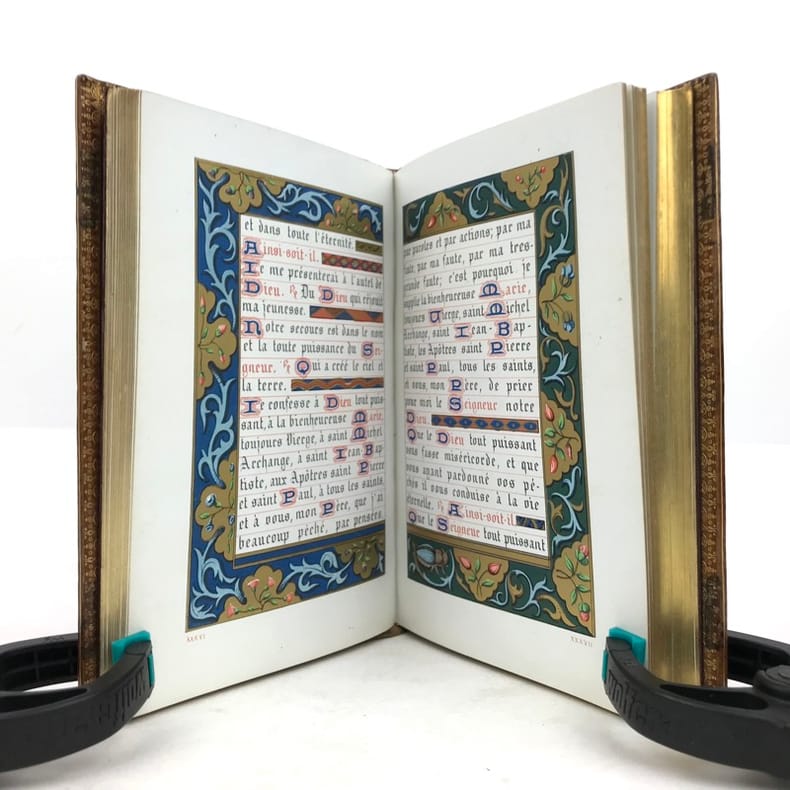 et dans toute l'éternité.
Ainsi-soit-il.
Ie me présenterai à l'autel de
Dieu. ℟ Du Dieu qui réjouit
ma jeunesse.
Notre secours est dans le nom
et la toute puissance du Sei-
gneur. ℟ Qui a créé le ciel et
la terre.
Ie confesse à Dieu tout puis-
sant, à la bienheureuse Marie,
toujours Vierge, à saint Michel
Archange, à saint Iean-Bap-
tiste, aux Apôtres saint Pierre
et saint Paul, à tous les saints,
et à vous, mon Père, que j'ai
beaucoup péché, par pensées,
XXXVI
par paroles et par actions; par ma
faute, par ma faute, par ma tres-
grande faute; c'est pourquoi je
supplie la bienheureuse Marie,
toujours Vierge, saint Michel
Archange, saint Iean-Bap-
tiste, les Apôtres saint Pierre
et saint Paul, tous les saints,
et vous, mon Père, de prier
pour moi le Seigneur notre
Dieu.
Que le Dieu tout puissant
vous fasse miséricorde, et que
vous ayant pardonné vos pé-
chés il vous conduise à la vie
éternelle. ℟ Ainsi-soit-il.
Que le Seigneur tout puissant
XXXVII